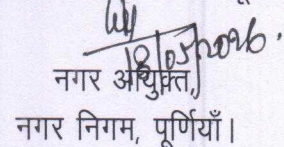 18/05/2026.
नगर आयुक्त,
नगर निगम, पूर्णियाँ।